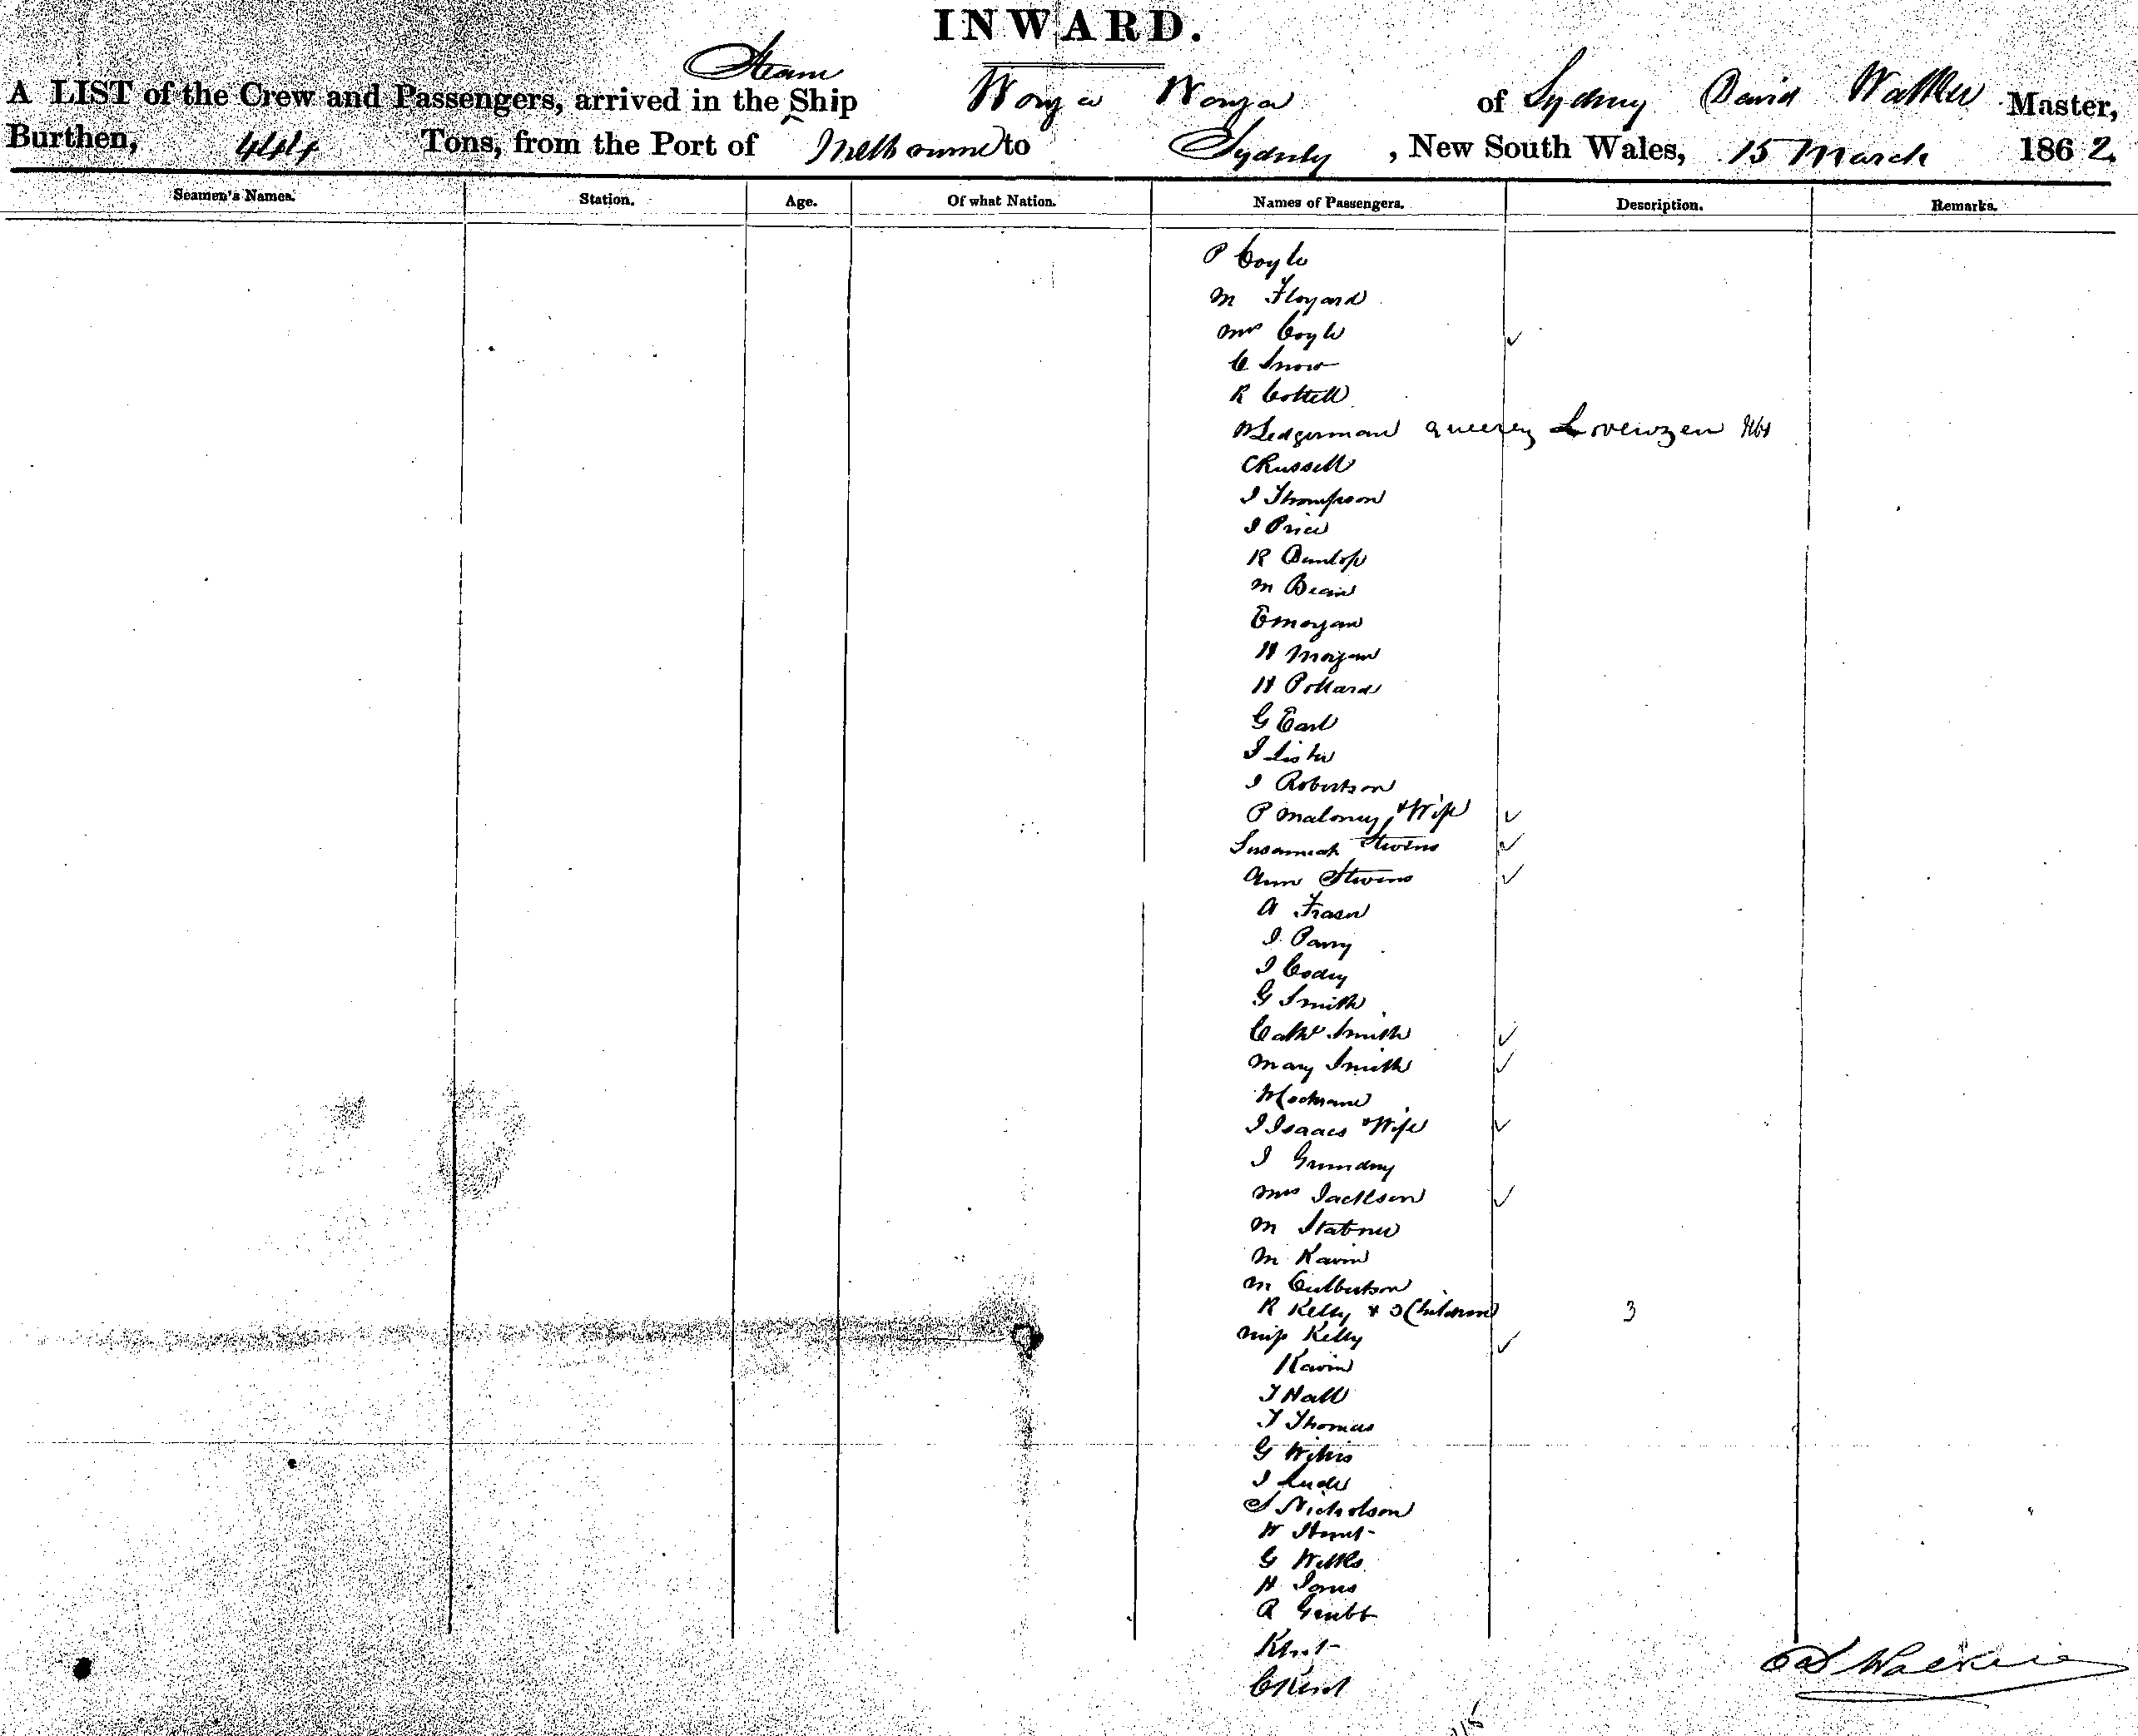 INWARD.
Steam
A LIST of the Crew and Passengers, arrived in the Ship Wonga Wonga of Sydney David Walker Master,
Burthen, 444 Tons, from the Port of Melbourne to Sydney, New South Wales, 15 March 1862.
Seamen's Names. Station. Age. Of what Nation. Names of Passengers. Description. Remarks.
P Coyle
M Floyard
Mrs Coyle ✓
C Snow
R Cottell
Ledgerman
C Russell
J Thompson
J Price
R Dunlop
M Bean
E Morgan
H Morgan
H Pollard
G Earl
J Lister
J Robertson
P Maloney & Wife ✓
Susannah Stevens ✓
Ann Stevens ✓
A Fraser
J Parry
J Codey
G Smith
Cath Smith ✓
Mary Smith ✓
J Isaacs & Wife ✓
J Grundy
Mrs Jackson ✓
M
M Kavin
M Culbertson
R Kelly & 3 Children 3
Miss Kelly ✓
Kavin
J Hall
J Thomas
G
J
S Nicholson
W Hunt
G Wells
H Jones
R Grubb
Kent
C Kent
D Walker